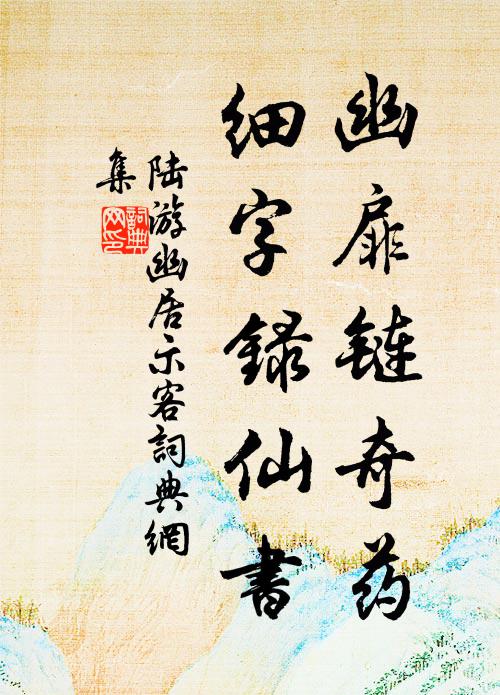 幽扉鏈奇药
细字録仙書
陆游幽居示客詞典網
集
詞典网印